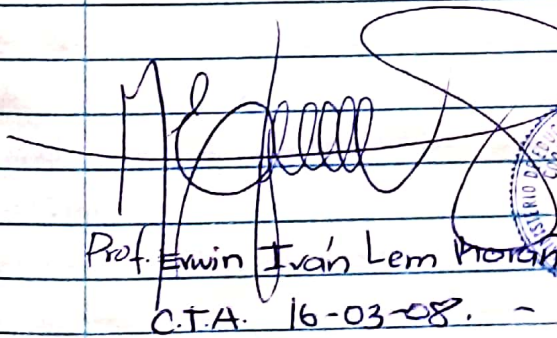 Prof. Erwin Iván Lem Morán
C.T.A. 16-03-08. -